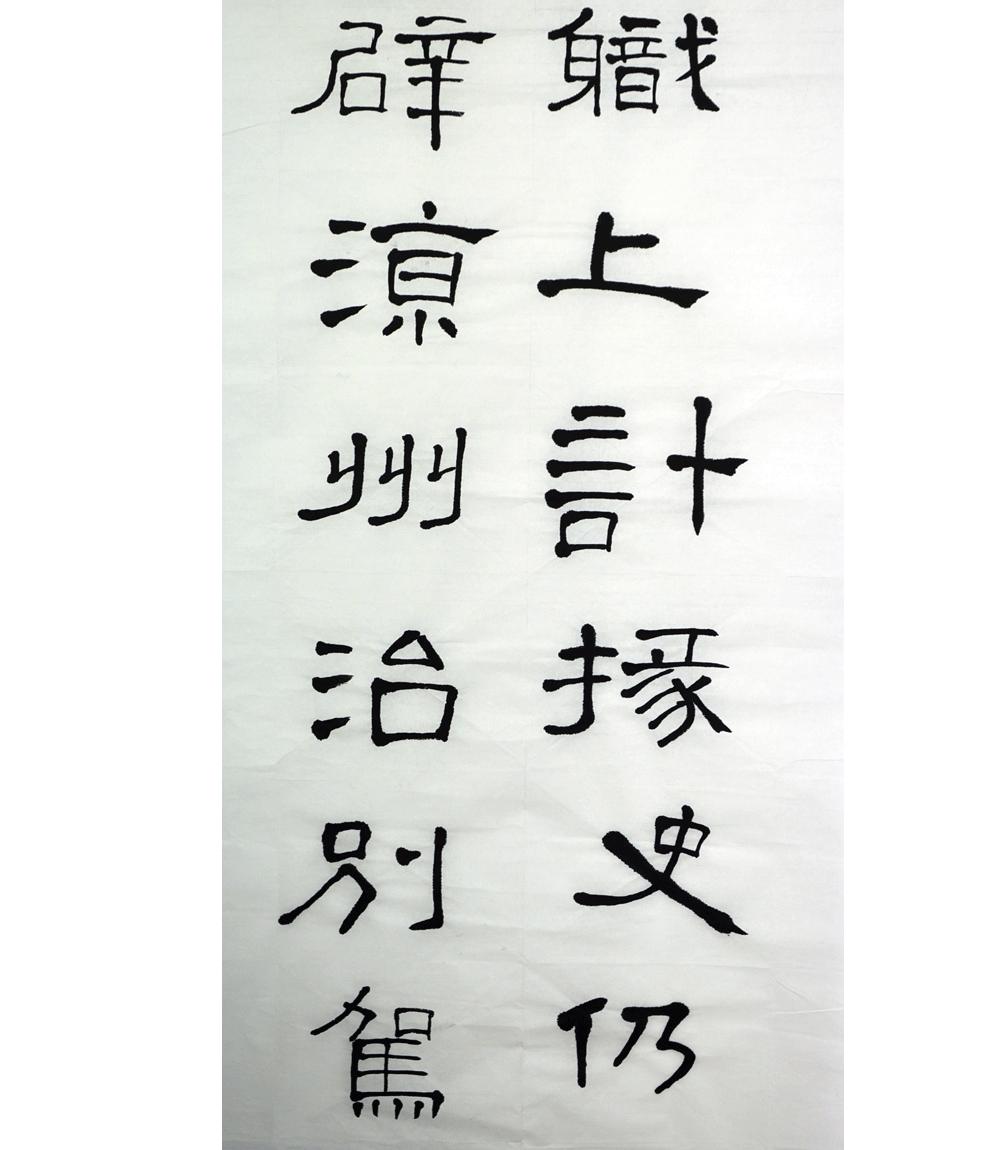 職上計掾史仍
辟涼州治別駕